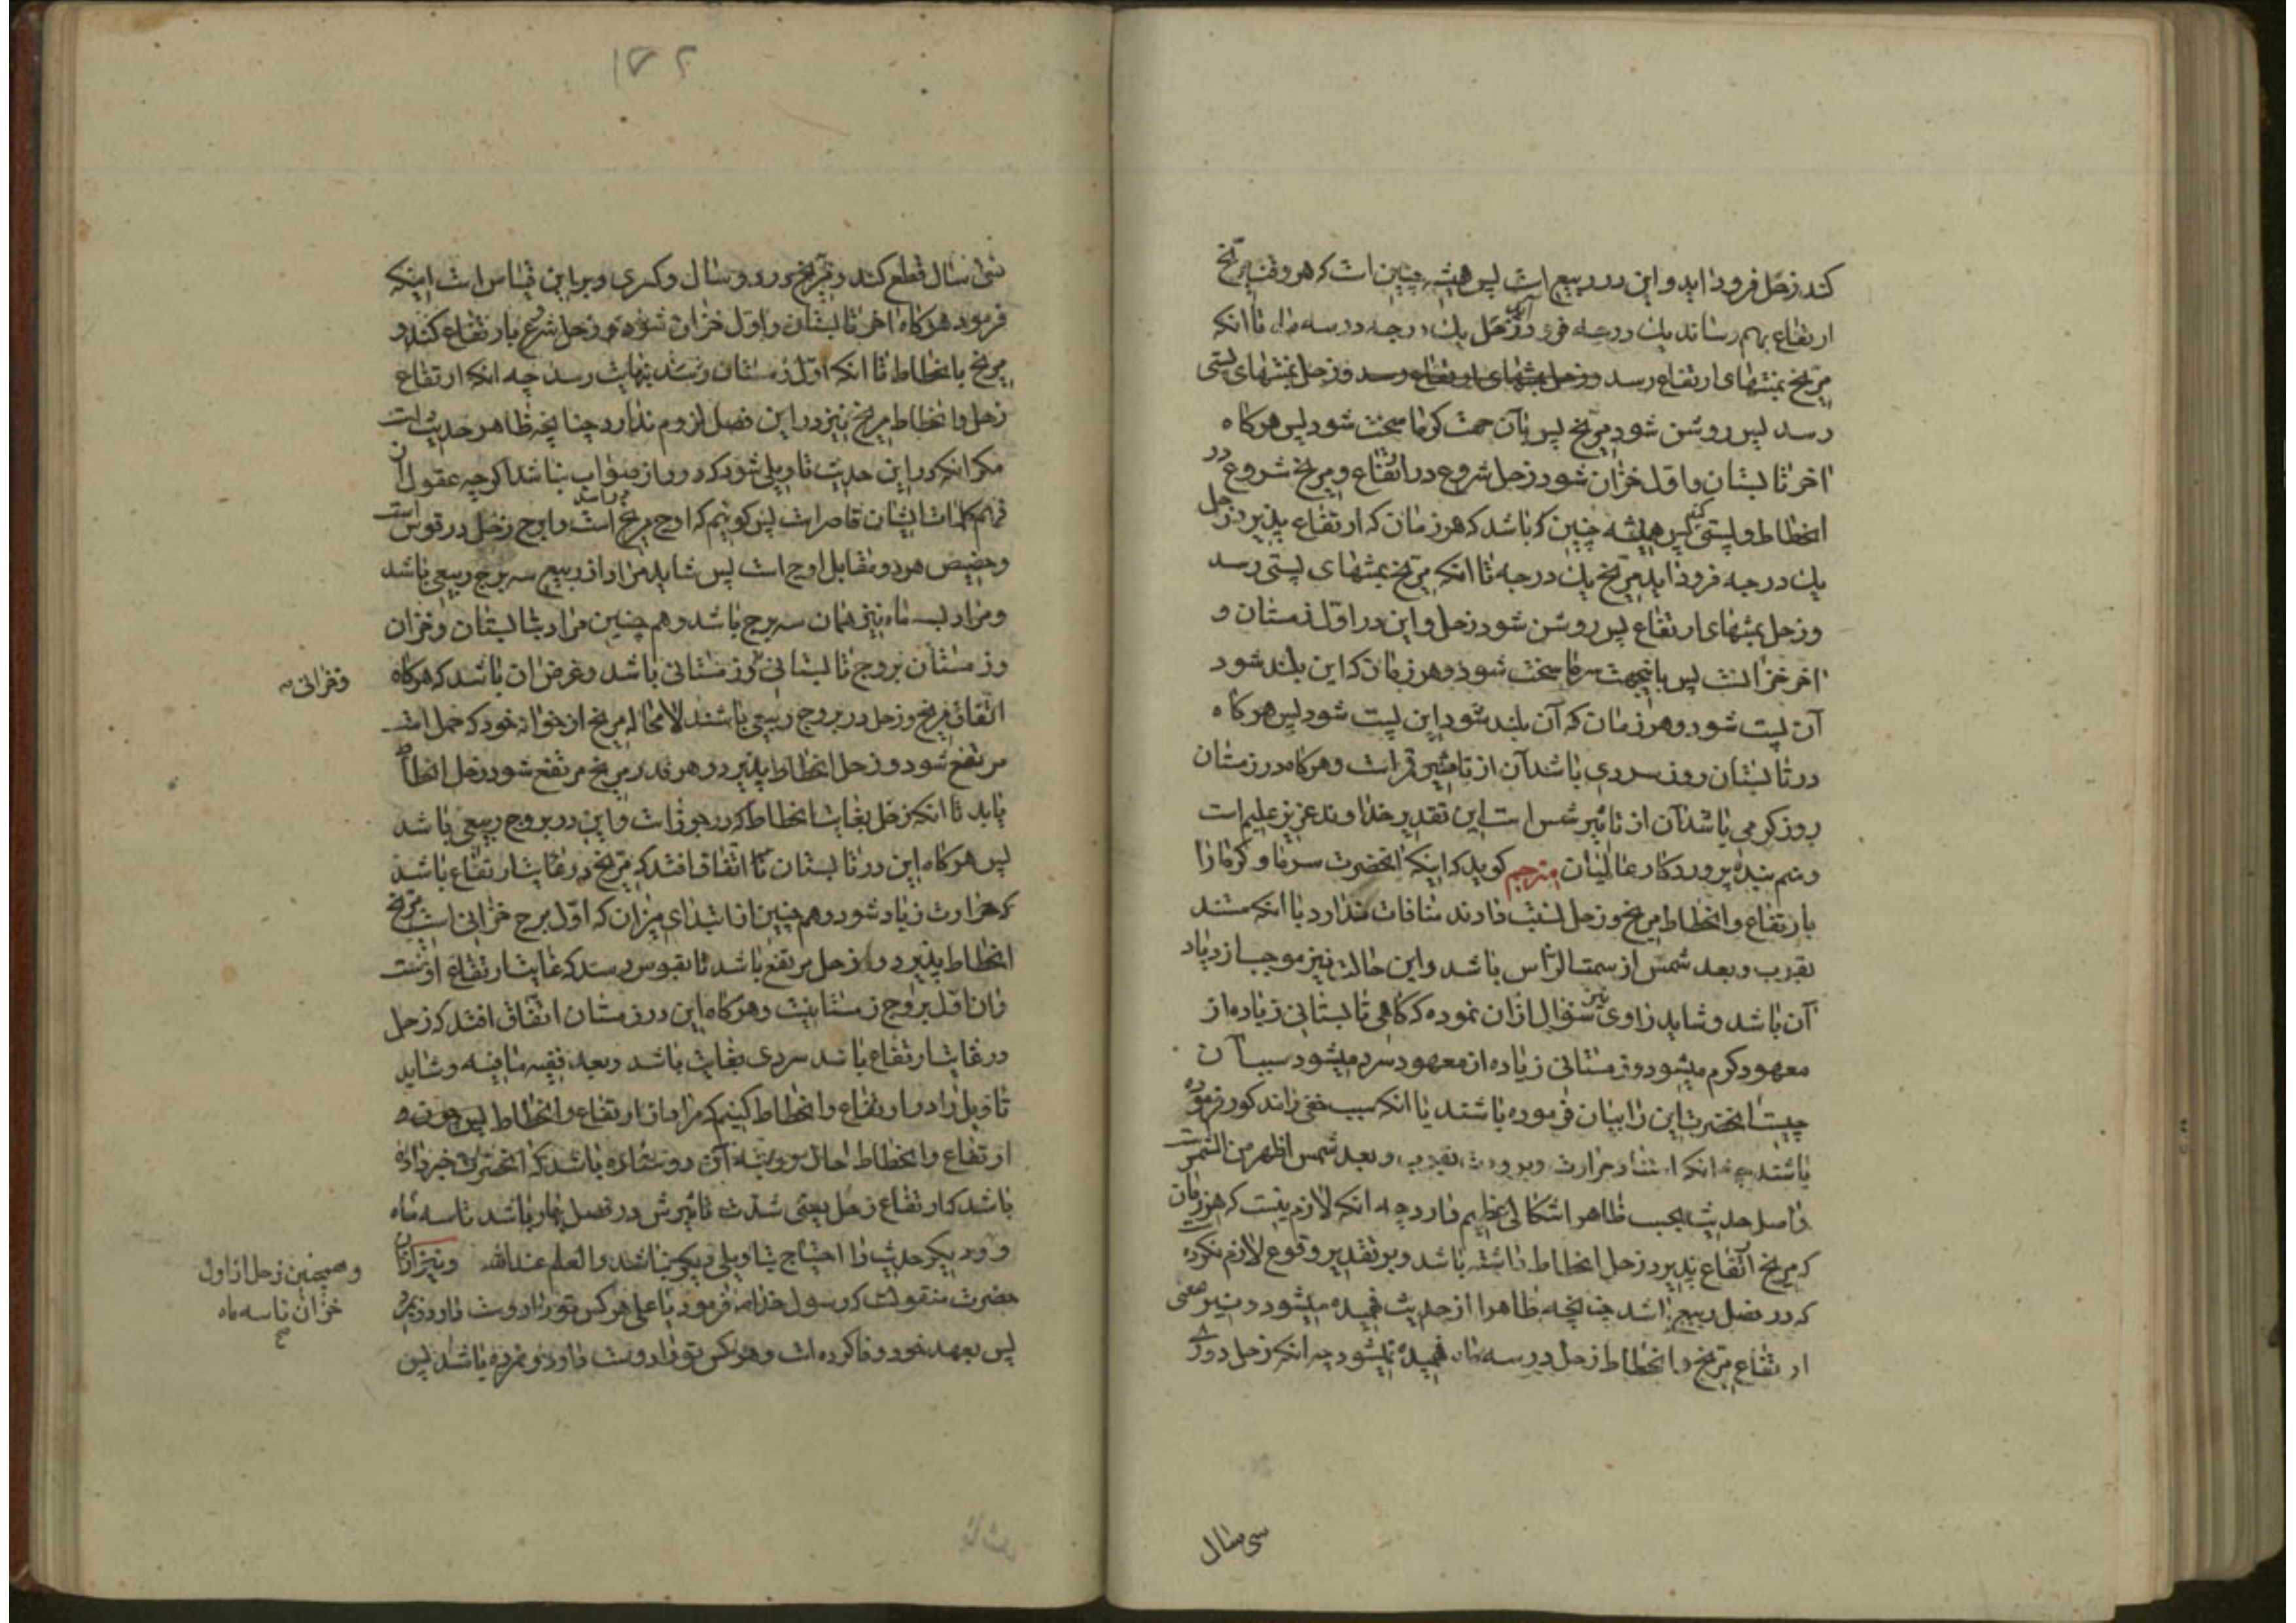 کند زحل فرود اید و این در ربیع است پس همیشه چنین است که هر وقت مریخ
ارتفاع بهم رساند یک درجه فرود آید زحل یک درجه در سه ماه تا انکه
مریخ بمنتهای ارتفاع رسد و زحل بمنتهای ارتفاع رسد و زحل بمنتهای پستی
رسد پس روشن شود مریخ پس بآن جهت کرما سخت شود پس هرکاه
اخر تابستان و اول خزان شود زحل شروع در ارتفاع و مریخ شروع در
انحطاط و پستی کند پس همیشه چنین که باشد که هر زمان که ارتفاع پذیرد زحل
یک درجه فرود اید مریخ یک درجه تا انکه مریخ بمنتهای پستی رسد
و زحل بمنتهای ارتفاع پس روشن شود زحل و این در اول زمستان و
اخر خزانست پس باینجهت سرما سخت شود و هر زمان که این بلند شود
آن پست شود و هر زمان که آن بلند شود این پست شود پس هرکاه
در تابستان روز سردی باشد آن از تاثیر قمر است و هرکاه در زمستان
روز کرمی باشد آن از تاثیر شمس است این تقدیر خداوند عزیز علیم است
و منم بنده پروردکار عالمیان مترجم کوید که اینکه انحضرت سرما و کرما را
بارتفاع و انحطاط مریخ و زحل نسبت دادند منافات ندارد با انکه مستند
بقرب و بعد شمس از سمت الراس باشد و این حالت نیز موجب ازدیاد
آن باشد و شاید راوی نیز سؤال ازان نموده که کاهی تابستانی زیاده از
معهود کرم میشود و زمستانی زیاده از معهود سرد میشود سبب آن
چیست انحضرت این را بیان فرموده باشند یا انکه سبب خفی را مذکور فرموده
باشند چه انکه استناد حرارت و برودت بقرب و بعد شمس اظهر من الشمس است
و اصل حدیث بحسب ظاهر اشکالی عظیم دارد چه انکه لازم نیست که هر زمان
که مریخ ارتفاع پذیرد زحل انحطاط داشته باشد و بر تقدیر وقوع لازم نکرده است
که در فصل ربیع باشد چنانچه ظاهرا از حدیث فهمیده میشود و نیز معنی
ارتفاع مریخ و انحطاط زحل در سه ماه فهمیده نمیشود چه انکه زحل دوره
سی سال
۱۷۲
سی سال قطع کند و مریخ در دو سال و کسری و بر این قیاس است اینکه
فرمود هرکاه اخر تابستان و اول خزان شود زحل شروع بارتفاع کند و
مریخ بانحطاط تا انکه اول زمستان بنهایت رسد چه انکه ارتفاع
زحل و انحطاط مریخ نیز در این فصل لزوم ندارد چنانچه ظاهر حدیث است
مکر انکه در این حدیث تاویلی شود که دور از صواب نباشد اکرچه عقول از
فهم کلمات ایشان قاصر است پس کوئیم که اوج مریخ است و اوج زحل در قوس است
و حضیض هر دو مقابل اوج است پس شاید مراد از ربیع سه برج ربیعی باشد
و مراد بسه ماه نیز همان سه برج باشد و هم چنین مراد بتابستان و خزان
و زمستان بروج تابستانی و زمستانی باشد و غرض ان باشد که هرکاه
و خزانی صح
اتفاق مریخ و زحل در بروج ربیعی باشند لا محاله مریخ از خود که حمل است
مرتفع شود و زحل انحطاط پذیرد و هر قدر مریخ مرتفع شود زحل انحطاط
یابد تا انکه زحل بغایت انحطاط که در جوزاست و این در بروج ربیعی باشد
پس هرکاه این در تابستان اتفاق افتد که مریخ در غایت ارتفاع باشد
که حرارت زیاد شود و هم چنین از ابتدای میزان که اول برج خزانی است مریخ
انحطاط پذیرد و زحل مرتفع باشد تا بقوس رسد که غایت ارتفاع اوست
و ان اول بروج زمستانیست و هرکاه این در زمستان اتفاق افتد که زحل
در غایت ارتفاع باشد سردی بغایت باشد و بعد فیه ما فیه و شاید
تاویل را در ارتفاع و انحطاط کنیم که مراد از ارتفاع و انحطاط
ارتفاع و انحطاط آن دو ستاره باشد که انحضرت خبر داده
باشد که ارتفاع زحل یعنی شدت تاثیرش در فصل بهار باشد تا سه ماه
و همچنین زحل از اول
خزان تا سه ماه
صح
و دیکر حدیث را احتیاج بتاویلی دیکر نباشد و العلم عند الله و نیز از ان
حضرت منقولست که رسول خدا فرمود یا علی هر کس تو را دوست دارد و بمیرد
پس بعهد خود وفا کرده است و هر کس تو را دوست دارد و نمرده باشد پس